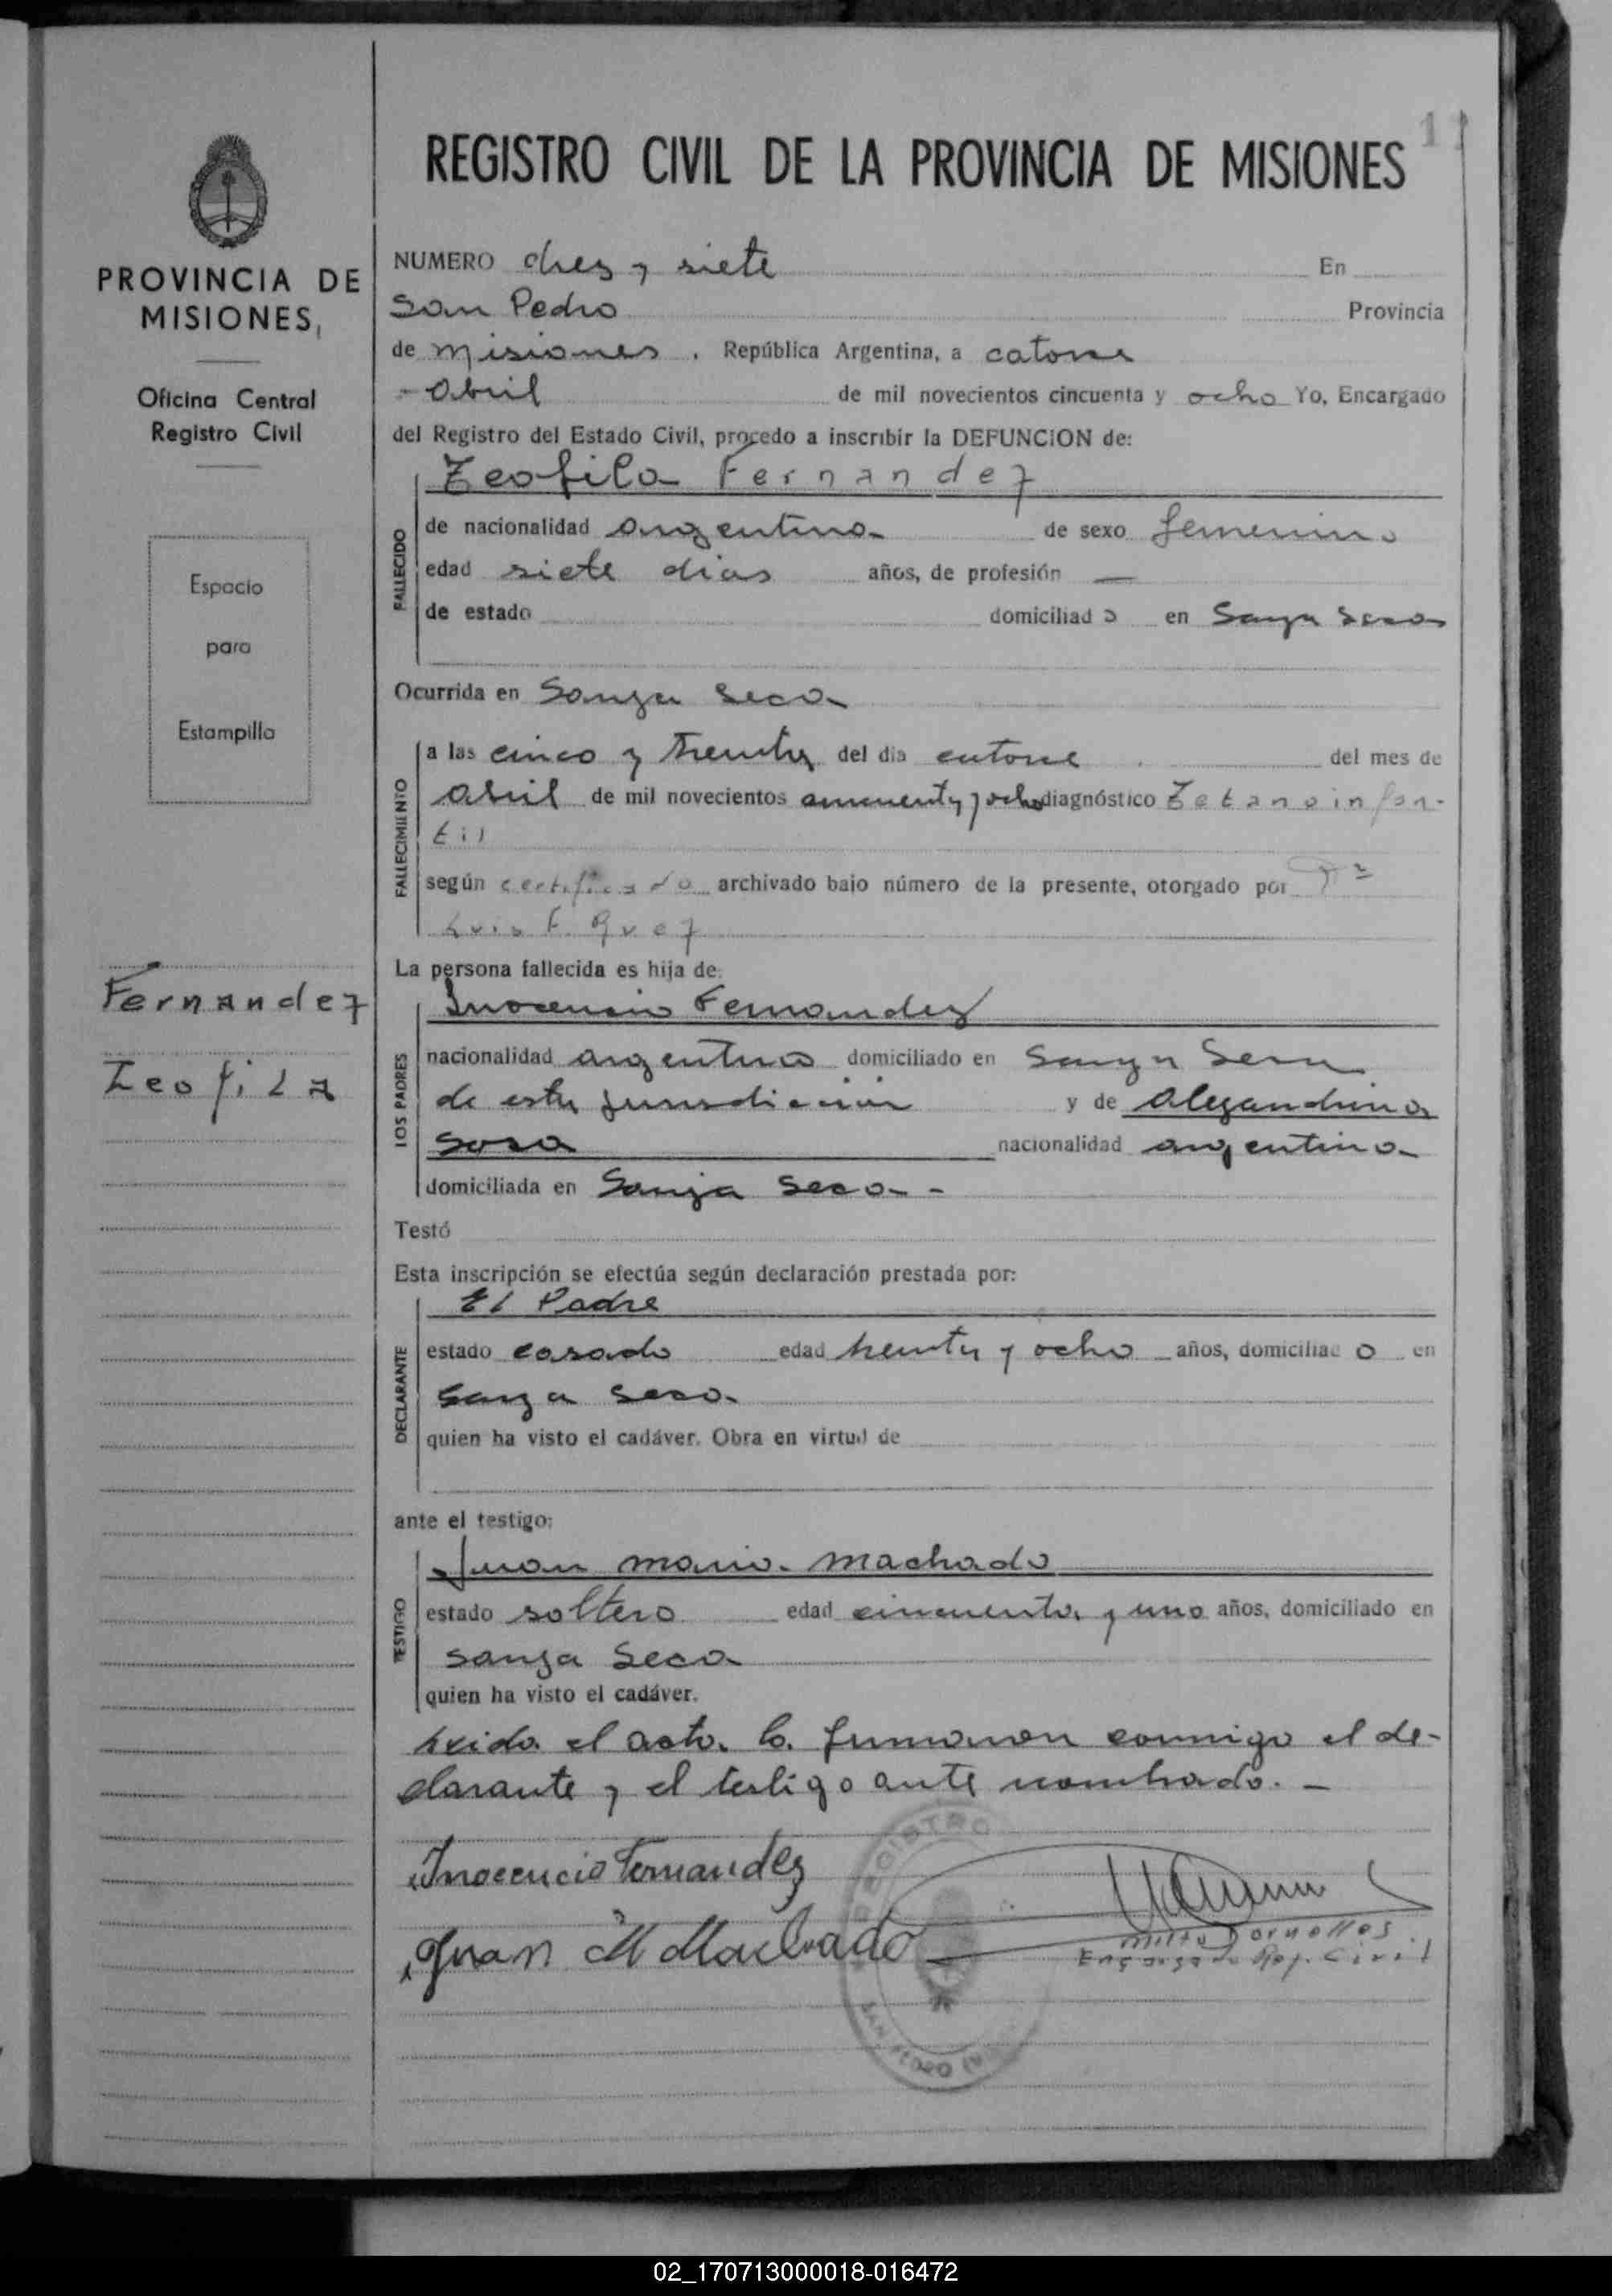 17
REGISTRO CIVIL DE LA PROVINCIA DE MISIONES
PROVINCIA DE
MISIONES,
Oficina Central
Registro Civil
Espacio
para
Estampilla
Fernandez
Teofila
NUMERO diez y siete En
San Pedro Provincia
de Misiones, República Argentina, a catorce
- Abril de mil novecientos cincuenta y ocho Yo, Encargado
del Registro del Estado Civil, procedo a inscribir la DEFUNCION de:
Teofila Fernandez
FALLECIDO
de nacionalidad argentina de sexo femenino
edad siete dias años, de profesión —
de estado domiciliad o en Sanja Seca
Ocurrida en Sanja Seca
FALLECIMIENTO
a las cinco y treinta del dia catorce del mes de
Abril de mil novecientos cincuenta y ocho diagnóstico Tetano infan-
til
según certificado archivado bajo número de la presente, otorgado por
Luis F.
La persona fallecida es hija de:
Inocencio Fernandez
LOS PADRES
nacionalidad argentino domiciliado en Sanja Seca
de esta jurisdiccion y de Alejandrina
Sosa nacionalidad argentina
domiciliada en Sanja Seca -
Testó
Esta inscripción se efectúa según declaración prestada por:
El Padre
DECLARANTE
estado casado edad treinta y ocho años, domiciliad o en
Sanja Seca
quien ha visto el cadáver. Obra en virtud de
ante el testigo:
Juan Maria Machado
TESTIGO
estado soltero edad cincuenta y uno años, domiciliado en
Sanja Seca
quien ha visto el cadáver.
Leida el acta la firmaron conmigo el de-
clarante y el testigo ante nombrado. -
Inocencio Fernandez
Juan M Machado
Dornelles
Encargado Reg. Civil
REGISTRO
SAN PEDRO
02_170713000018-016472